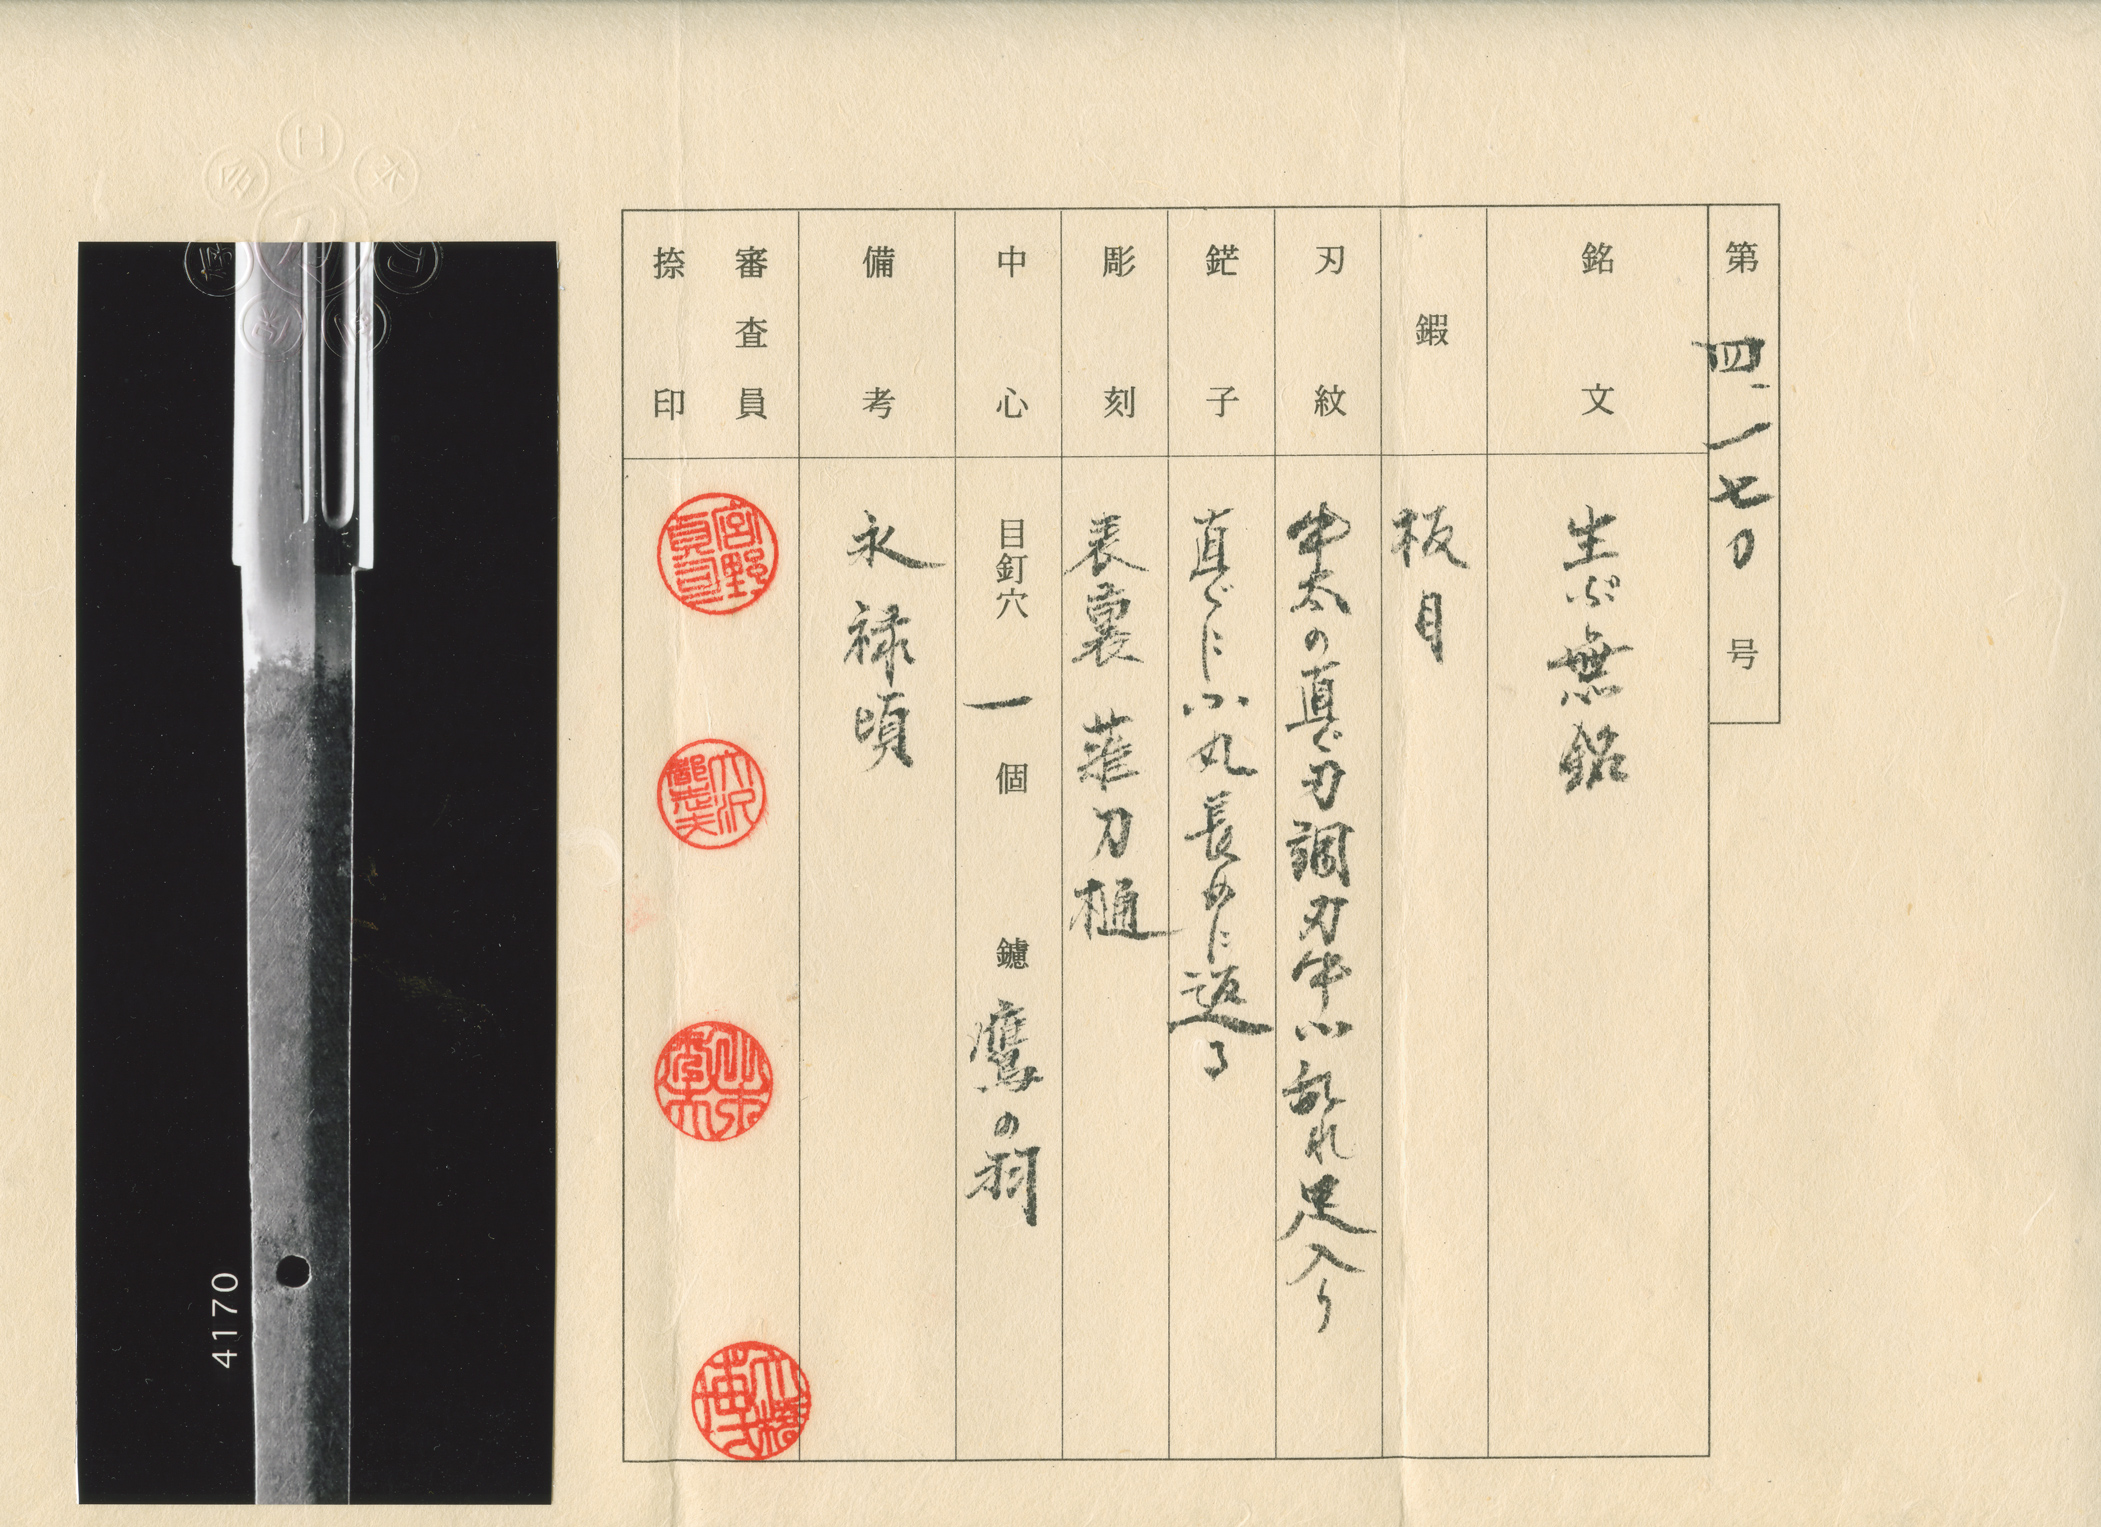 第 四、一七〇 号
銘文 生ぶ無銘
鍜 板目
刃紋 中太の直ぐ刃調刃中小乱れ足入り
鋩子 直ぐに小丸長めに返る
彫刻 表裏 薙刀樋
中心 目釘穴 一 個 鑢 鷹の羽
備考 永禄頃
審査員
捺印
宮野
4170